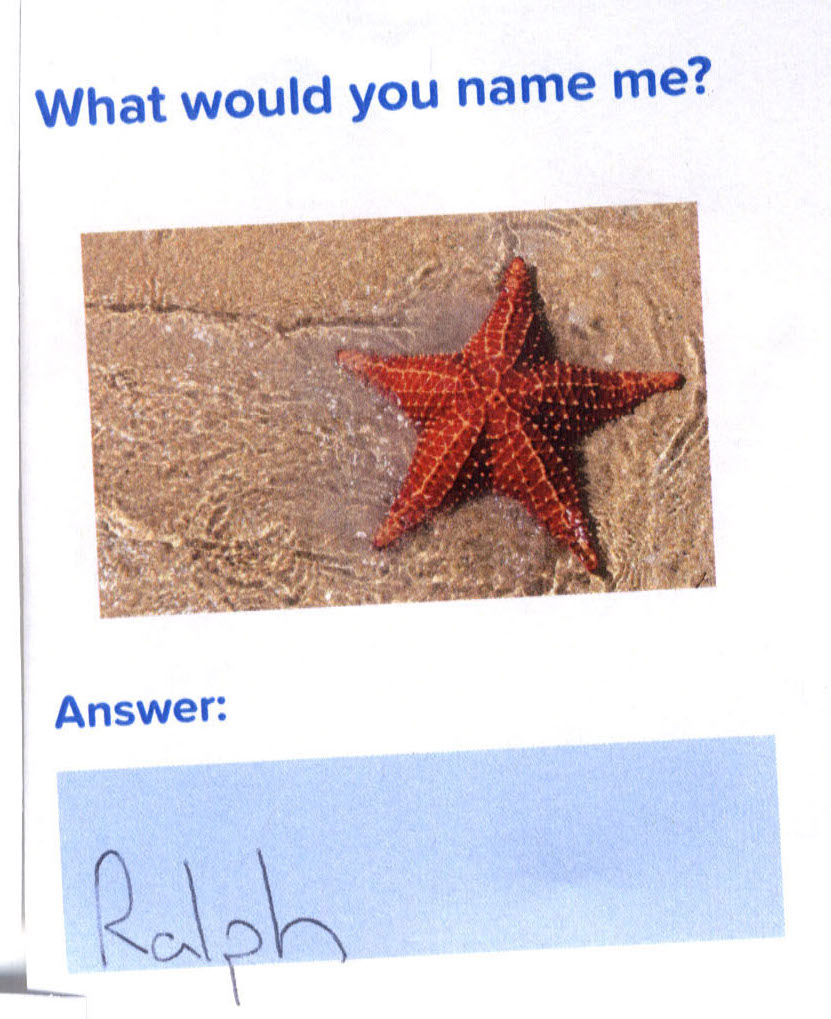 What would you name me?
Answer:
Ralph